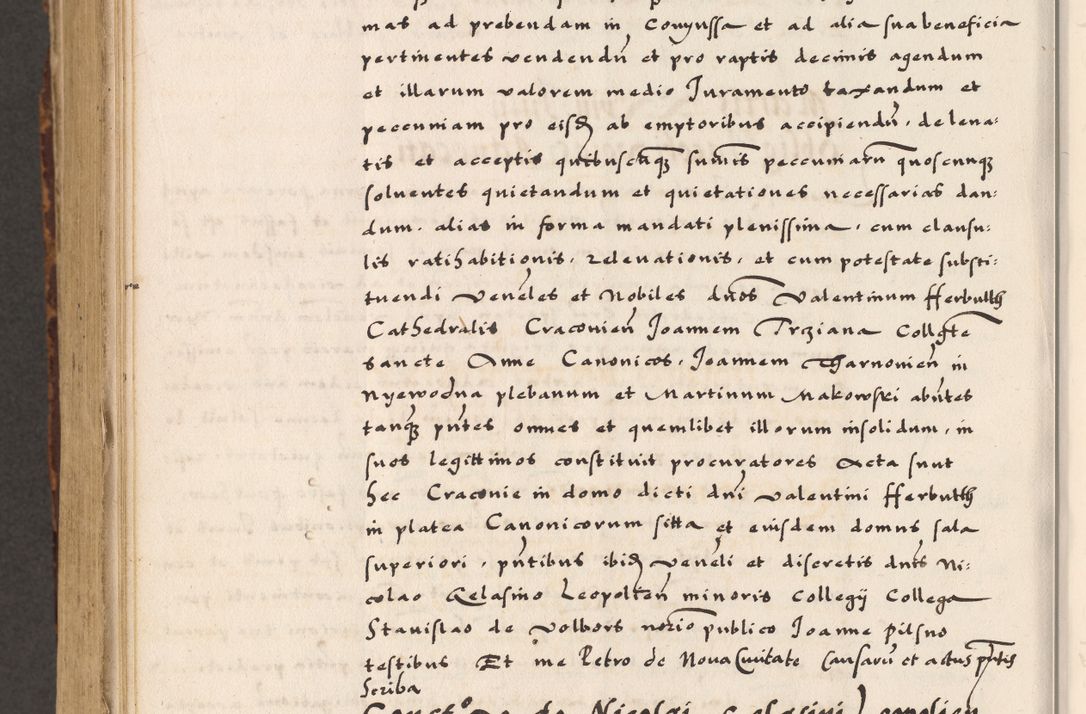 mas ad prebendam in Conyussa et ad alia sua beneficia
pertinentes vendendu͂ et pro raptis decimis agendum
et illarum valorem medio Juramento taxandum et
peccuniam pro eisd ab emptoribus accipiendu͂, de leua-
tis et acceptis quibuscu͂q sum͂is peccuniaru͂ quoscunq
soluentes quietandum et quietationes necessarias dan-
dum. alias in forma mandati plenissima, cum clausu-
lis ratihabitionis, releuationis, et cum potestate substi-
tuendi Vene͂les et Nobiles dn͂os Valentinum fferbutth
Cathedralis Cracouien͂ Joannem Trziana Collg͂te
sancte Anne Canonicos, Joannem Tharnouien͂ in
Nyewodna plebanum et Martinum Makowski abn͂tes
tanq͂ pn͂tes omnes et quemlibet illorum insolidum, in
suos legittimos constituit procuratores Acta sunt
hec Cracouie in domo dicti dn͂i Valentini fferbutth
in platea Canonicorum sitta et eiusdem domus sala
superiori, pn͂tibus ibid Vene͂li et discretis dn͂is Ni-
colao Gelasino Leopolien͂ minoris Collegij Collega
Stanislao de Volbors nor͂io publico Joanne Pilsno
testibus Et me Petro de Noua Ciuitate Causaru͂ et actus pn͂tis
Scriba